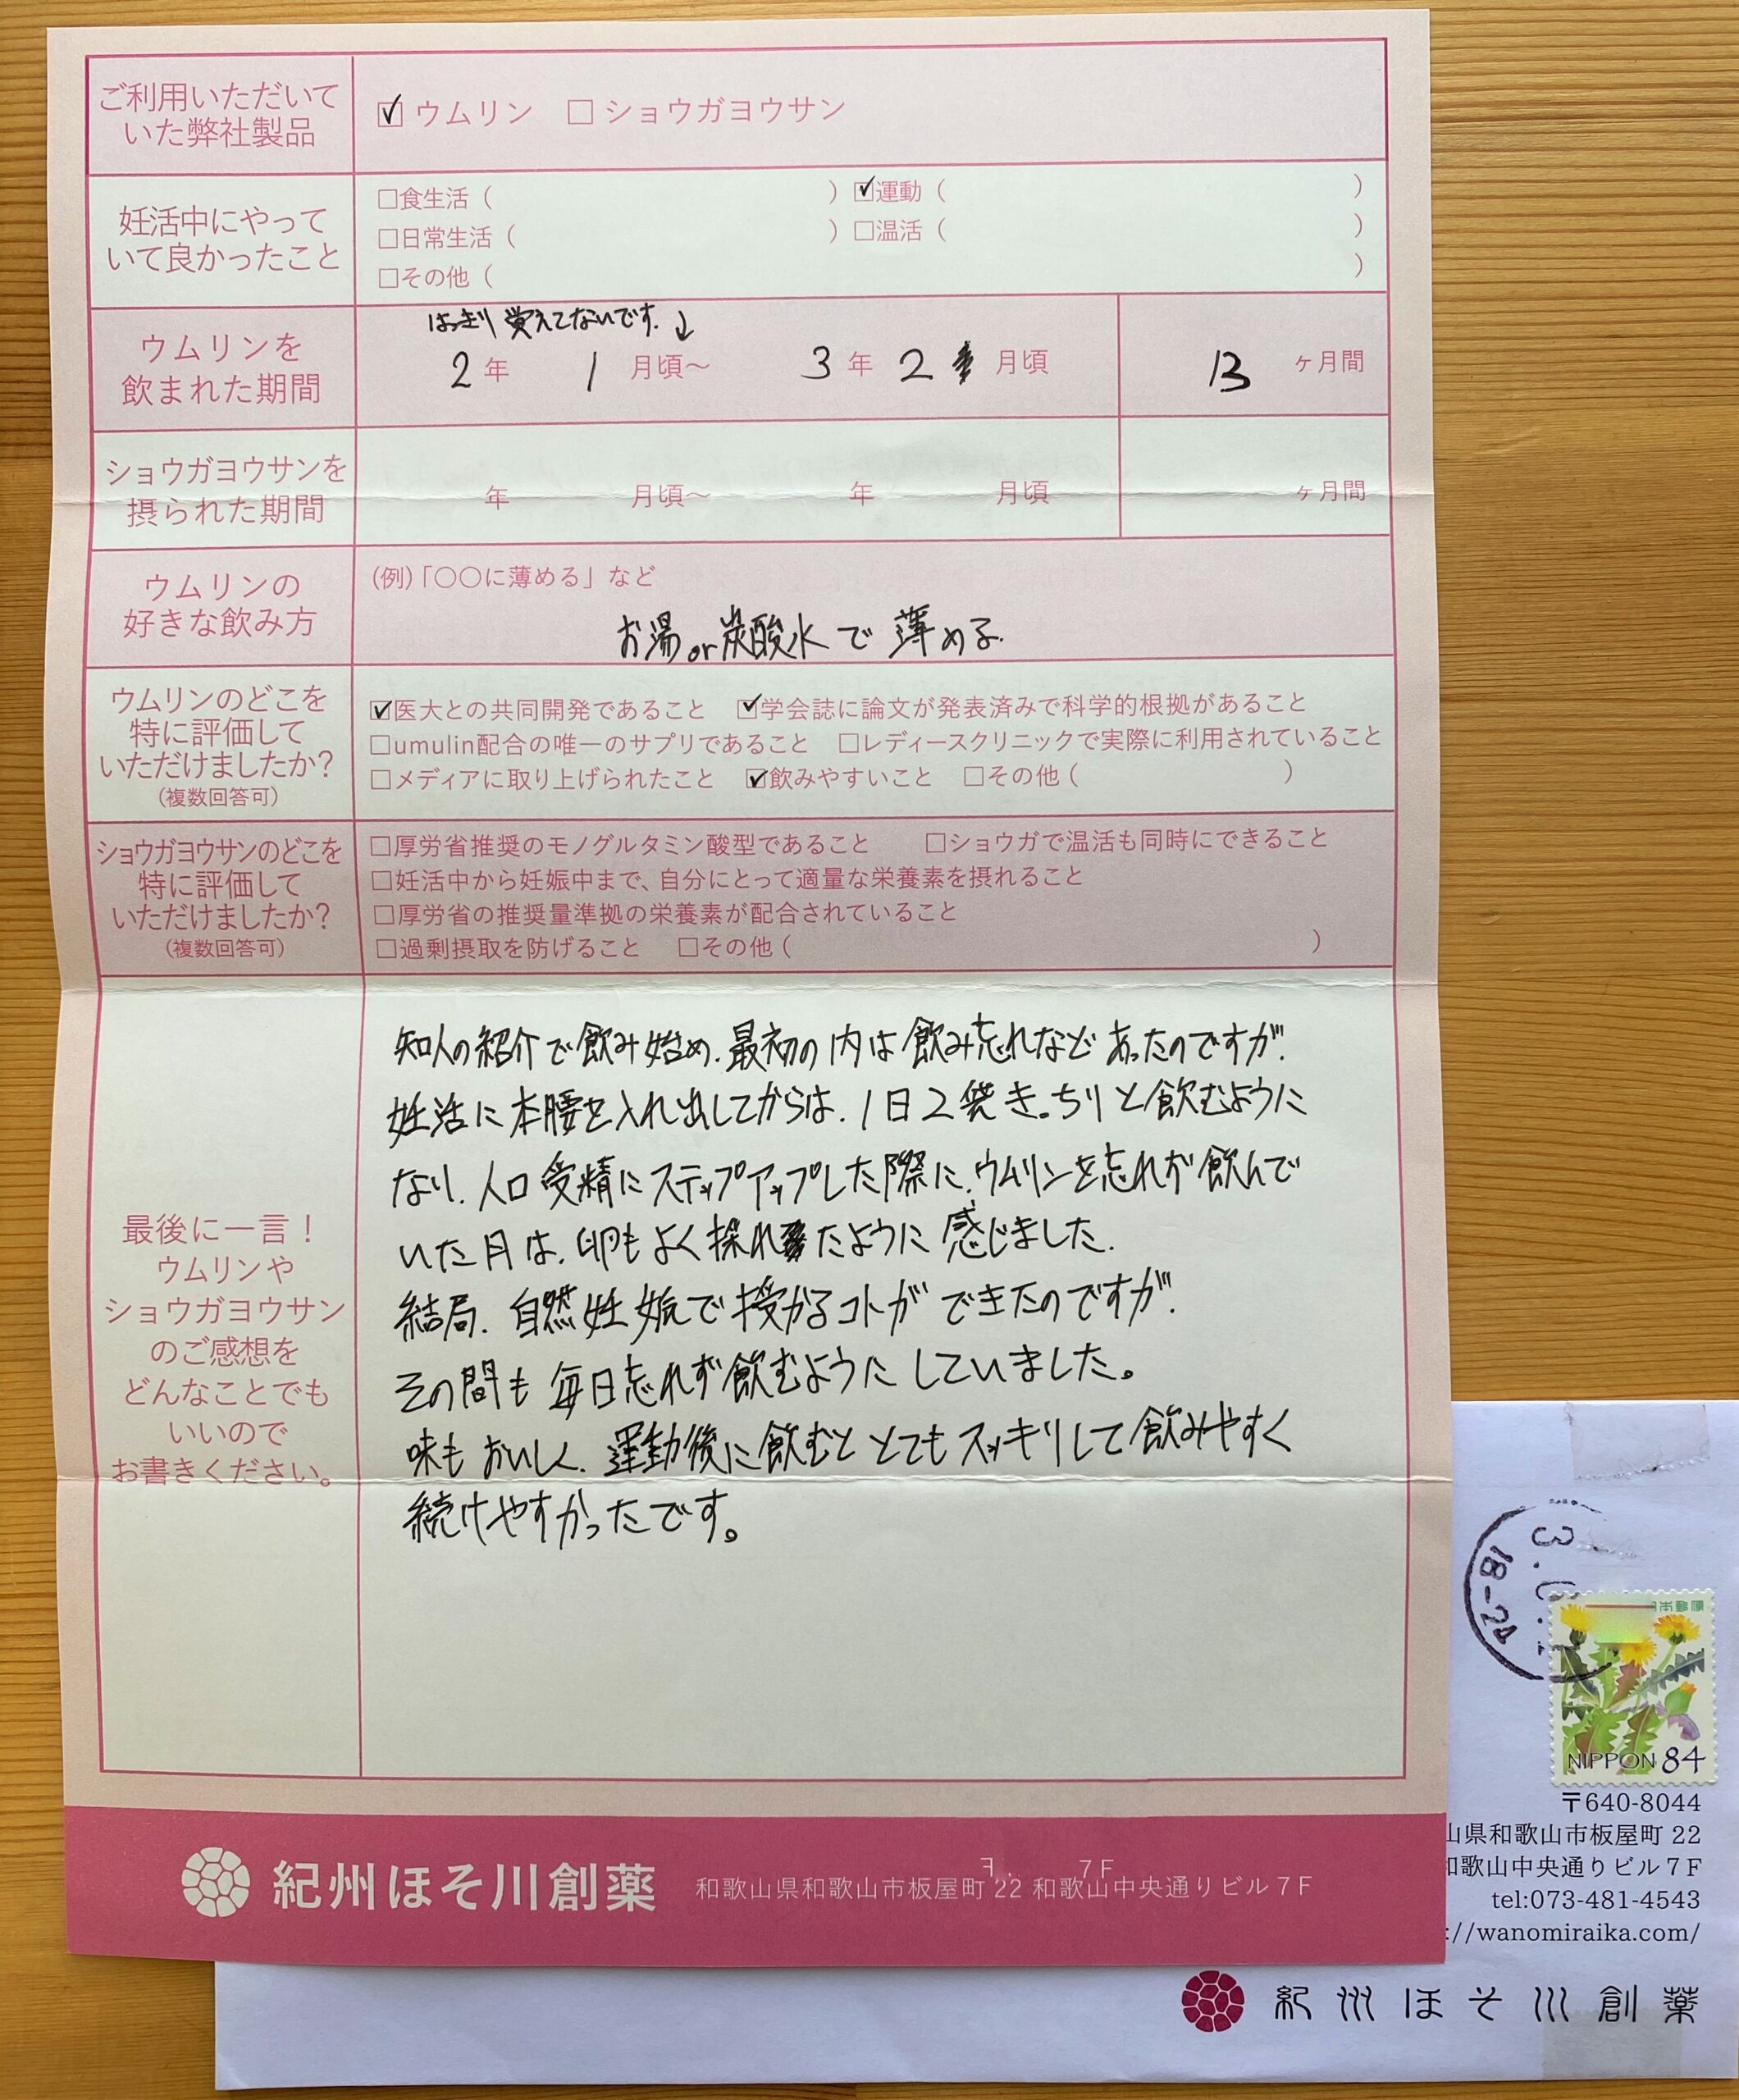 ご利用いただいて
いた弊社製品
☑ウムリン □ショウガヨウサン
妊活中にやって
いて良かったこと
□食生活( ) ☑運動( )
□日常生活( ) □温活( )
□その他( )
ウムリンを
飲まれた期間
はっきり覚えてないです。↓
2年 1月頃〜 3年 2月頃 13ヶ月間
ショウガヨウサンを
摂られた期間
年 月頃〜 年 月頃 ヶ月間
ウムリンの
好きな飲み方
(例)「〇〇に薄める」など
お湯or炭酸水で薄める.
ウムリンのどこを
特に評価して
いただけましたか?
(複数回答可)
☑医大との共同開発であること ☑学会誌に論文が発表済みで科学的根拠があること
□umulin配合の唯一のサプリであること □レディースクリニックで実際に利用されていること
□メディアに取り上げられたこと ☑飲みやすいこと □その他( )
ショウガヨウサンのどこを
特に評価して
いただけましたか?
(複数回答可)
□厚労省推奨のモノグルタミン酸型であること □ショウガで温活も同時にできること
□妊活中から妊娠中まで、自分にとって適量な栄養素を摂れること
□厚労省の推奨量準拠の栄養素が配合されていること
□過剰摂取を防げること □その他( )
最後に一言!
ウムリンや
ショウガヨウサン
のご感想を
どんなことでも
いいので
お書きください。
知人の紹介で飲み始め、最初の内は飲み忘れなどあったのですが、
妊活に本腰を入れ出してからは、1日2袋きっちりと飲むように
なり、人口受精にステップアップした際に、ウムリンを忘れず飲んで
いた月は、卵もよく採れたように感じました.
結局、自然妊娠で授かるコトができたのですが、
その間も毎日忘れず飲むようにしていました。
味もおいしく、運動後に飲むととてもスッキリして飲みやすく
続けやすかったです。
紀州ほそ川創薬 和歌山県和歌山市板屋町22 和歌山中央通りビル7F
7F
18-24
NIPPON 84
〒640-8044
山県和歌山市板屋町 22
和歌山中央通りビル7F
tel:073-481-4543
://wanomiraika.com/
紀州ほそ川創薬